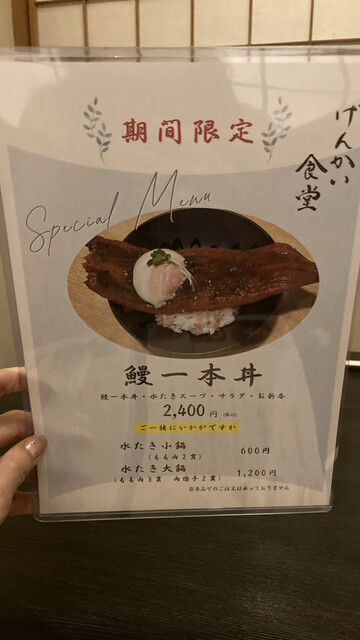 期間限定
げんかい
食堂
Special Menu
鰻一本丼
鰻一本丼・水たきスープ・サラダ・お新香
2,400円 (税込)
ご一緒にいかがですか
水たき小鍋 600円
(もも肉2貫)
水たき大鍋 1,200円
(もも肉3貫 肉団子2貫)
※単品でのご注文は承っておりません